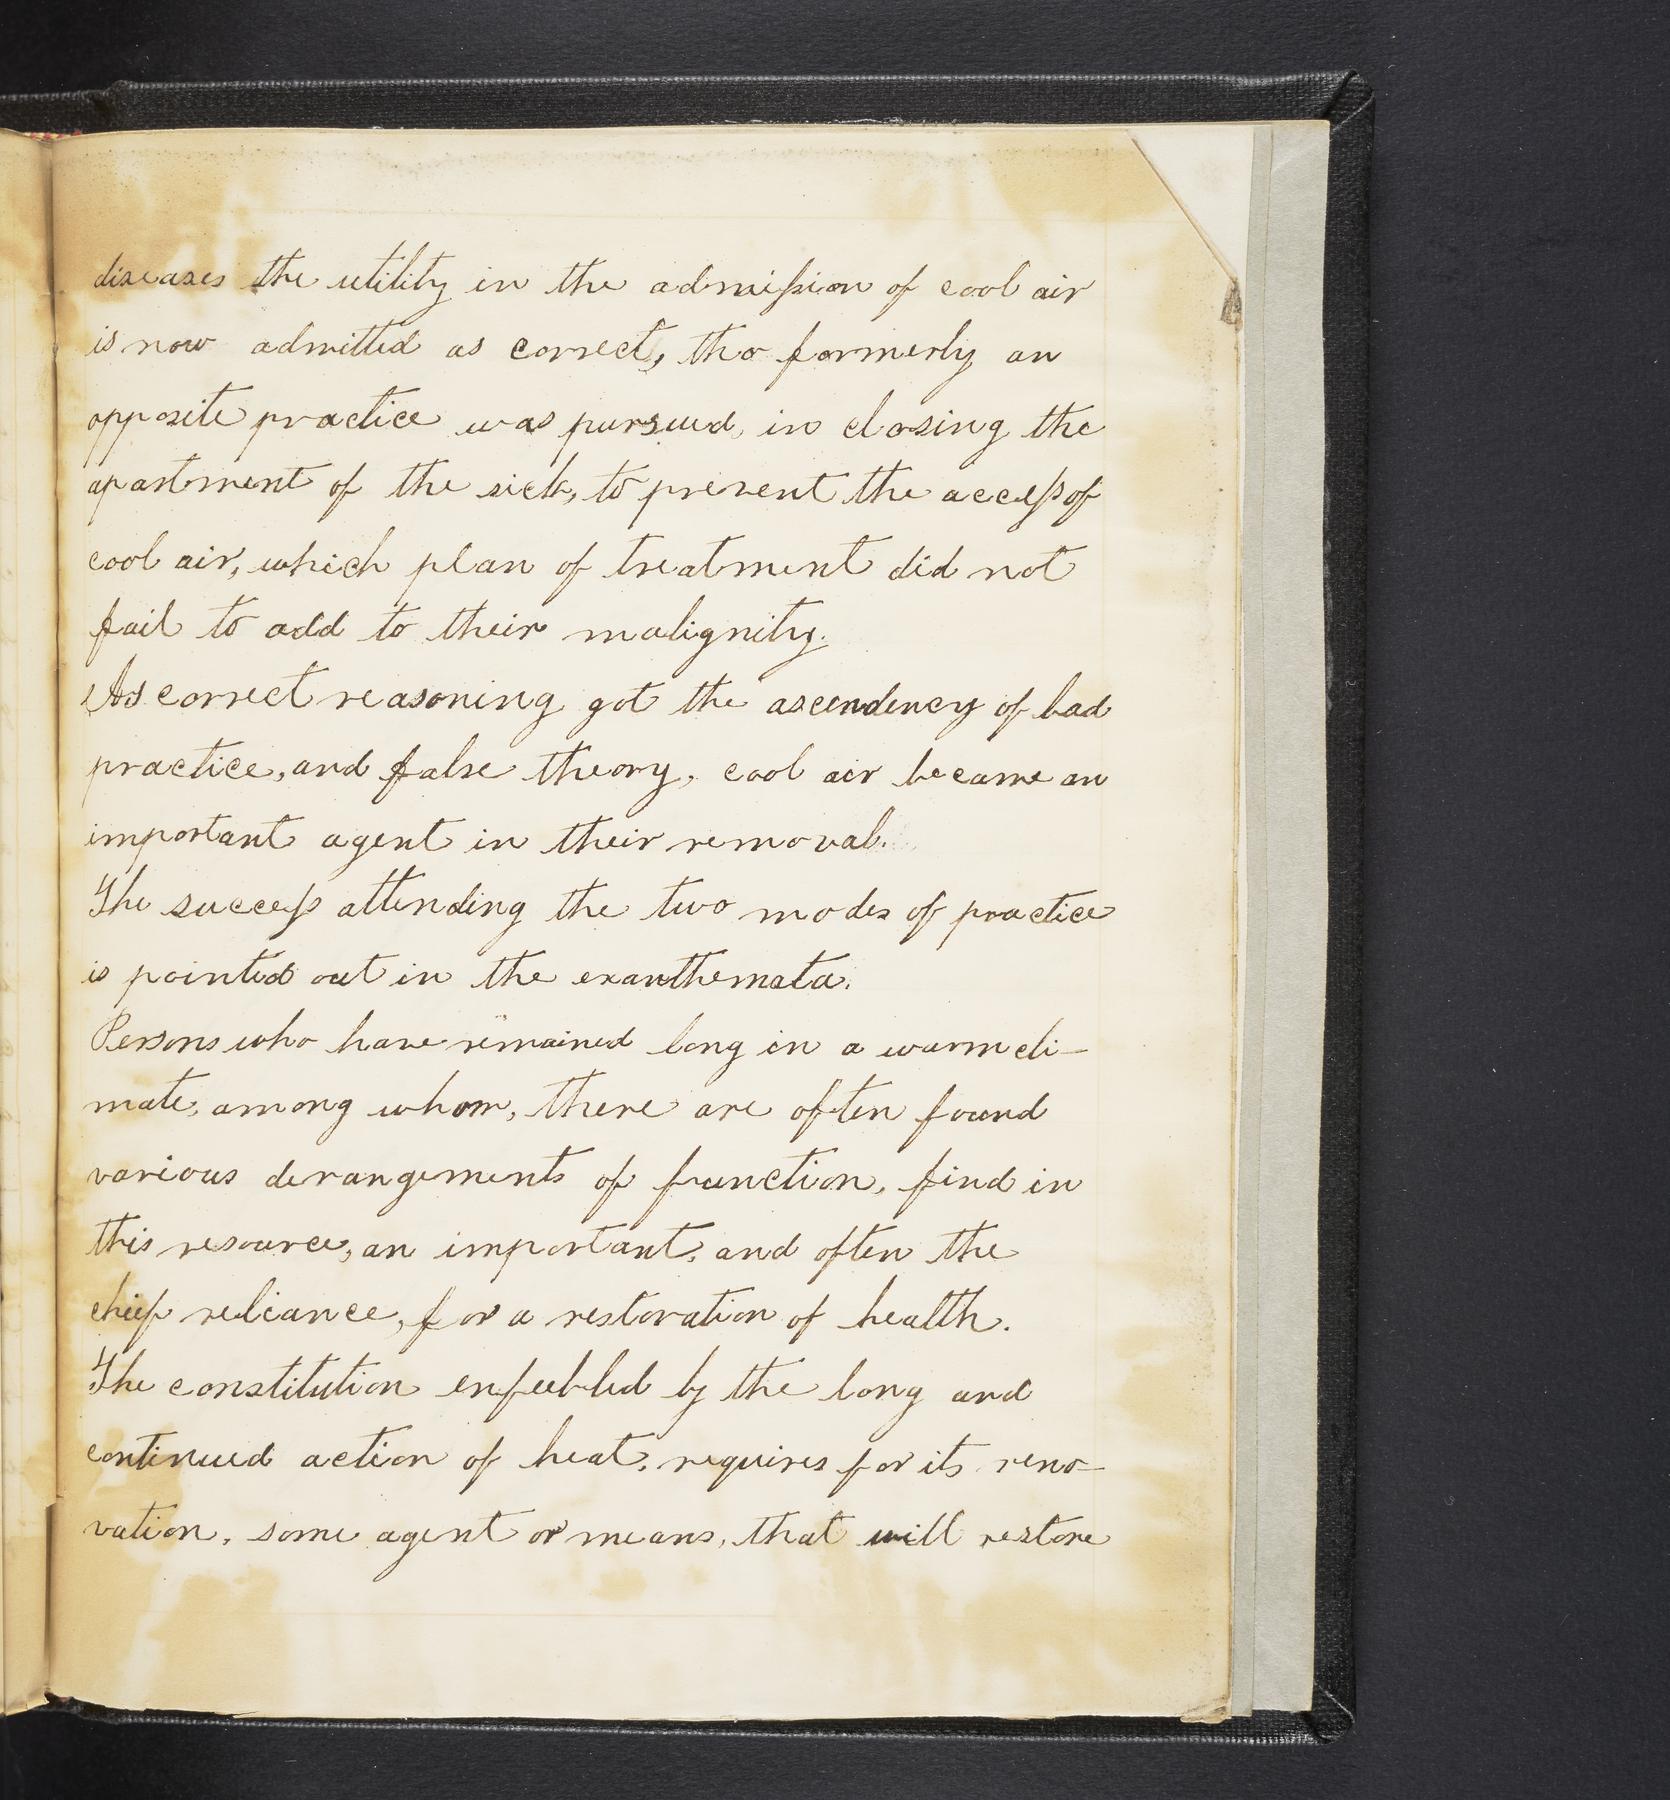 diseases the utility in the admiſsion of cool air
is now admitted as correct, tho formerly an
opposite practice was pursued, in closing the
apartment of the sick, to prevent the acceſs of
cool air, which plan of treatment did not
fail to add to their malignity.
As correct reasoning got the ascendency of bad
practice, and false theory, cool air became an
important agent in their removal.
The succeſs attending the two modes of practice
is pointed out in the exanthemata.
Persons who have remained long in a warm cli-
mate, among whom, there are often found
various derangements of function, find in
this resource, an important, and often the
chief reliance, for a restoration of health.
The constitution enfeebled by the long and
continued action of heat, requires for its reno-
vation, some agent or means, that will restore